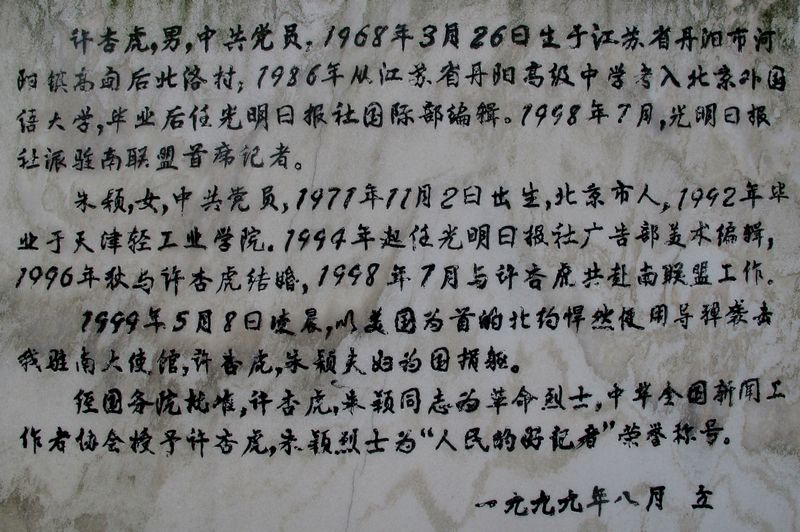 许杏虎,男,中共党员,1968年3月26日生于江苏省丹阳市河
阳镇高甸后北洛村;1986年从江苏省丹阳高级中学考入北京外国
语大学,毕业后任光明日报社国际部编辑。1998年7月,光明日报
社派驻南联盟首席记者。
朱颖,女,中共党员,1971年11月2日出生,北京市人,1992年毕
业于天津轻工业学院.1994年起任光明日报社广告部美术编辑,
1996年秋与许杏虎结婚,1998年7月与许杏虎共赴南联盟工作。
1999年5月8日凌晨,以美国为首的北约悍然使用导弹袭击
我驻南大使馆,许杏虎,朱颖夫妇为国捐躯。
经国务院批准,许杏虎,朱颖同志为革命烈士,中华全国新闻工
作者协会授予许杏虎,朱颖烈士为“人民的好记者”荣誉称号。
一九九九年八月 立